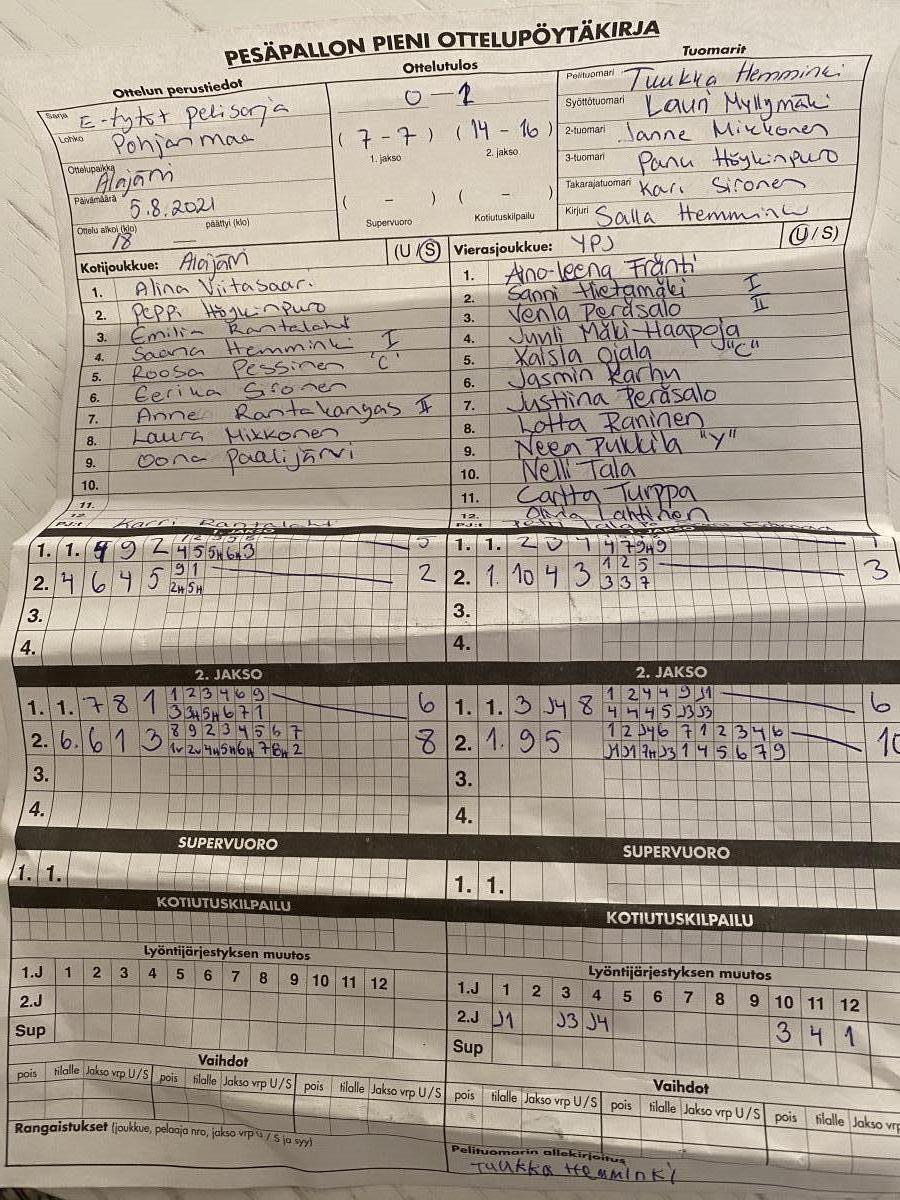 PESÄPALLON PIENI OTTELUPÖYTÄKIRJA
Ottelun perustiedot
Ottelutulos
Tuomarit
Sarja E-tytöt pelisarja
Lohko Pohjanmaa
Ottelupaikka Alajärvi
Päivämäärä 5.8.2021
Ottelu alkoi (klo) 18 — päättyi (klo)
0 - 1
( 7 - 7 ) ( 14 - 16 )
1. jakso 2. jakso
( - ) ( - )
Supervuoro Kotiutuskilpailu
Pelituomari Tuukka Hemminki
Syöttötuomari Lauri Myllymäki
2-tuomari Janne Mikkonen
3-tuomari Panu Höykinpuro
Takarajatuomari Kari Sironen
Kirjuri Salla Hemminki
Kotijoukkue: Alajärvi (U/S)
1. Alina Viitasaari
2. Peppi Höykinpuro
3. Emilia Rantalaht
4. Saana Hemminki I
5. Roosa Pessinen "C"
6. Eerika Sironen
7. Anne Rantakangas II
8. Laura Mikkonen
9. Oona Paalijärvi
10.
11.
12.
PJ:t Karri Rantalaht
Vierasjoukkue: YPJ (U/S)
1. Aino-Leena Fränti
2. Sanni Hietamäki I
3. Venla Peräsalo II
4. Junli Mäki-Haapoja
5. Kaisla Ojala "C"
6. Jasmin Karhu
7. Justiina Peräsalo
8. Lotta Raninen
9. Neea Pukkila "Y"
10. Nelli Tala
11. Carita Turppa
12. Lahtinen
PJ:t
1. 1. 9 2
2. 4 6 4 5 9 1 2
2H 5H
3.
4.
1. 1.
2. 1. 10 4 3 1 2 5 3
3 3 7
3.
4.
2. JAKSO
1. 1. 7 8 1 1 2 3 4 6 9 6
3 3H 5H 6 7 1
2. 6. 6 1 3 8 9 2 3 4 5 6 7 8
1V 2V 4H 5H 6H 7 8H 2
3.
4.
2. JAKSO
1. 1. 3 J4 8 1 2 4 4 9 J1 6
4 4 4 5 J3 J3
2. 1. 9 5 1 2 J4 6 7 1 2 3 4 6 10
J1 J1 7H J3 1 4 5 6 7 9
3.
4.
SUPERVUORO
1. 1.
SUPERVUORO
1. 1.
KOTIUTUSKILPAILU
KOTIUTUSKILPAILU
Lyöntijärjestyksen muutos
1.J 1 2 3 4 5 6 7 8 9 10 11 12
2.J
Sup
Lyöntijärjestyksen muutos
1.J 1 2 3 4 5 6 7 8 9 10 11 12
2.J J1 J3 J4 3 4 1
Sup
Vaihdot
pois tilalle Jakso vrp U/S pois tilalle Jakso vrp U/S pois tilalle Jakso vrp U/S
Vaihdot
pois tilalle Jakso vrp U/S pois tilalle Jakso vrp U/S pois tilalle Jakso vrp
Rangaistukset (joukkue, pelaaja nro, jakso vrp U / S ja syy)
Pelituomarin allekirjoitus
Tuukka Hemminki